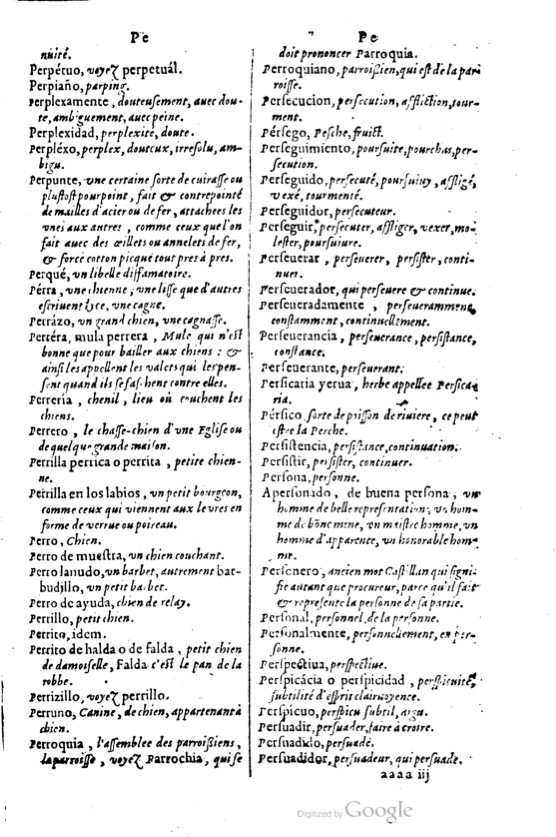 Pe
nuité.
Perpétuo, voyez perpetuál.
Perpiaño, parping.
Perplexamente, douteusement, auec dou-
te, ambiguement, auec peine.
Perplexidad, perplexité, doute.
Perpléxo, perplex, douteux, irresolu, am-
bigu.
Perpunte, vne certaine sorte de cuirasse ou
plustost pourpoint, fait & contrepointé
de mailles d'acier ou de fer, attachees les
vnes aux autres, comme ceux que l'on
fait auec des œillets ou annelets de fer,
& force cotton picqué tout pres à pres.
Perqué, vn libelle diffamatoire.
Pérra, vne chienne, vne lisse que d'autres
escriuent lyce, vne cagne.
Perrázo, vn grand chien, vne cagnasse.
Perréra, mula perrera, Mule qui n'est
bonne que pour bailler aux chiens: &
ainsi les appellent les valets qui les pen-
sent quand ils se faschent contre elles.
Perreria, chenil, lieu où couchent les
chiens.
Perrero, le chasse-chien d'vne Eglise ou
de quelque grande maison.
Perrilla perrica o perrita, petite chien-
ne.
Petrilla en los labios, vn petit bourgeon,
comme ceux qui viennent aux leures en
forme de verrue ou poireau.
Perro, Chien.
Perro de muestra, vn chien couchant.
Perro lanudo, vn barbet, autrement bar-
budillo, vn petit barbet.
Perro de ayuda, chien de relay.
Perrillo, petit chien.
Perrito, idem.
Perrito de halda o de falda, petit chien
de damoiselle, Falda c'est le pan de la
robbe.
Perrizillo, voyez perrillo.
Perruno, Canine, de chien, appartenant à
chien.
Perroquia, l'assemblee des parroißiens,
la parroisse, voyez Parrochia, qui se
Pe
doit prononcer Parroquia.
Perroquiano, parroißien, qui est de la par
roisse.
Persecucion, persecution, affliction, tour-
ment.
Pérsego, Pesche, fruict.
Perseguimiento, poursuite, pourchas, per-
secution.
Perseguido, persecuté, poursuiuy, affligé,
vexé, tourmenté.
Perseguidor, persecuteur.
Perseguir, persecuter, affliger, vexer, mo-
lester, poursuiure.
Perseuerar, perseuerer, persister, conti-
nuer.
Perseuerador, qui perseuere & continue.
Perseueradamente, perseueramment,
constamment, continuellement.
Perseuerancia, perseuerance, persistance,
constance.
Perseuerante, perseuerant.
Persicaria yerua, herbe appellee Persica
ria.
Pérsico, sorte de poisson de riuiere, ce peut
estre la Perche.
Persistencia, persistance, continuation.
Persistir, persister, continuer.
Persona, personne.
Apersonado, de buena persona, vn
homme de belle representation, vn hom-
me de bõne mine, vn maistre homme, vn
homme d'apparence, vn honorable hom-
me.
Personero, ancien mot Castillan qui signi-
fie autant que procureur, parce qu'il fait
& represente la personne de sa partie.
Personal, personnel, de la personne.
Personalmente, personnellement, en per-
sonne.
Perspectiua, perspectiue.
Perspicácia o perspicidad, perspicuité,
subtilité d'esprit clairuoyence.
Perspicuo, perspicu subtil, aigu.
Persuadir, persuader, faire à croire.
Persuadido, persuadé.
Persuadidor, persuadeur, qui persuade.
aaaa iij
Digitized by Google